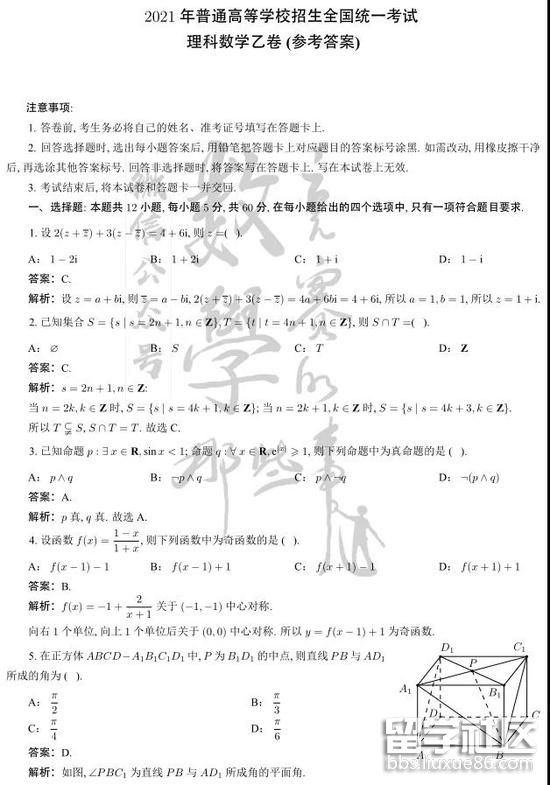 2021 年普通高等学校招生全国统一考试
理科数学乙卷 (参考答案)
注意事项:
1. 答卷前, 考生务必将自己的姓名、准考证号填写在答题卡上.
2. 回答选择题时, 选出每小题答案后, 用铅笔把答题卡上对应题目的答案标号涂黑. 如需改动, 用橡皮擦干净
后, 再选涂其他答案标号. 回答非选择题时, 将答案写在答题卡上. 写在本试卷上无效.
3. 考试结束后, 将本试卷和答题卡一并交回.
一、选择题: 本题共 12 小题, 每小题 5 分, 共 60 分, 在每小题给出的四个选项中, 只有一项符合题目要求.
1. 设 2(z + z̅) + 3(z − z̅) = 4 + 6i, 则 z =( ).
A: 1 − 2i B: 1 + 2i C: 1 + i D: 1 − i
答案: C.
解析: 设 z = a + bi, 则 z̅ = a − bi, 2(z + z̅) + 3(z − z̅) = 4a + 6bi = 4 + 6i, 所以 a = 1, b = 1, 所以 z = 1 + i.
2. 已知集合 S = {s | s = 2n + 1, n ∈ Z}, T = {t | t = 4n + 1, n ∈ Z}, 则 S ∩ T =( ).
A: ∅ B: S C: T D: Z
答案: C.
解析: s = 2n + 1, n ∈ Z;
当 n = 2k, k ∈ Z 时, S = {s | s = 4k + 1, k ∈ Z}; 当 n = 2k + 1, k ∈ Z 时, S = {s | s = 4k + 3, k ∈ Z}.
所以 T ⫋ S, S ∩ T = T. 故选 C.
3. 已知命题 p : ∃ x ∈ R, sin x < 1; 命题 q : ∀ x ∈ R, e^|x| ⩾ 1, 则下列命题中为真命题的是 ( ).
A: p ∧ q B: ¬p ∧ q C: p ∧ ¬q D: ¬(p ∧ q)
答案: A.
解析: p 真, q 真. 故选 A.
4. 设函数 f(x) = (1 − x)/(1 + x), 则下列函数中为奇函数的是 ( ).
A: f(x − 1) − 1 B: f(x − 1) + 1 C: f(x + 1) − 1 D: f(x + 1) + 1
答案: B.
解析: f(x) = −1 + 2/(x + 1) 关于 (−1, −1) 中心对称.
向右 1 个单位, 向上 1 个单位后关于 (0, 0) 中心对称. 所以 y = f(x − 1) + 1 为奇函数.
5. 在正方体 ABCD − A₁B₁C₁D₁ 中, P 为 B₁D₁ 的中点, 则直线 PB 与 AD₁
所成的角为 ( ).
A: π/2 B: π/3
C: π/4 D: π/6
答案: D.
解析: 如图, ∠PBC₁ 为直线 PB 与 AD₁ 所成角的平面角.
D₁ C₁
P
A₁ B₁
D C
A B
微信公众号
数学竞赛的那些事儿
留学社区
bbs.liuxue86.com